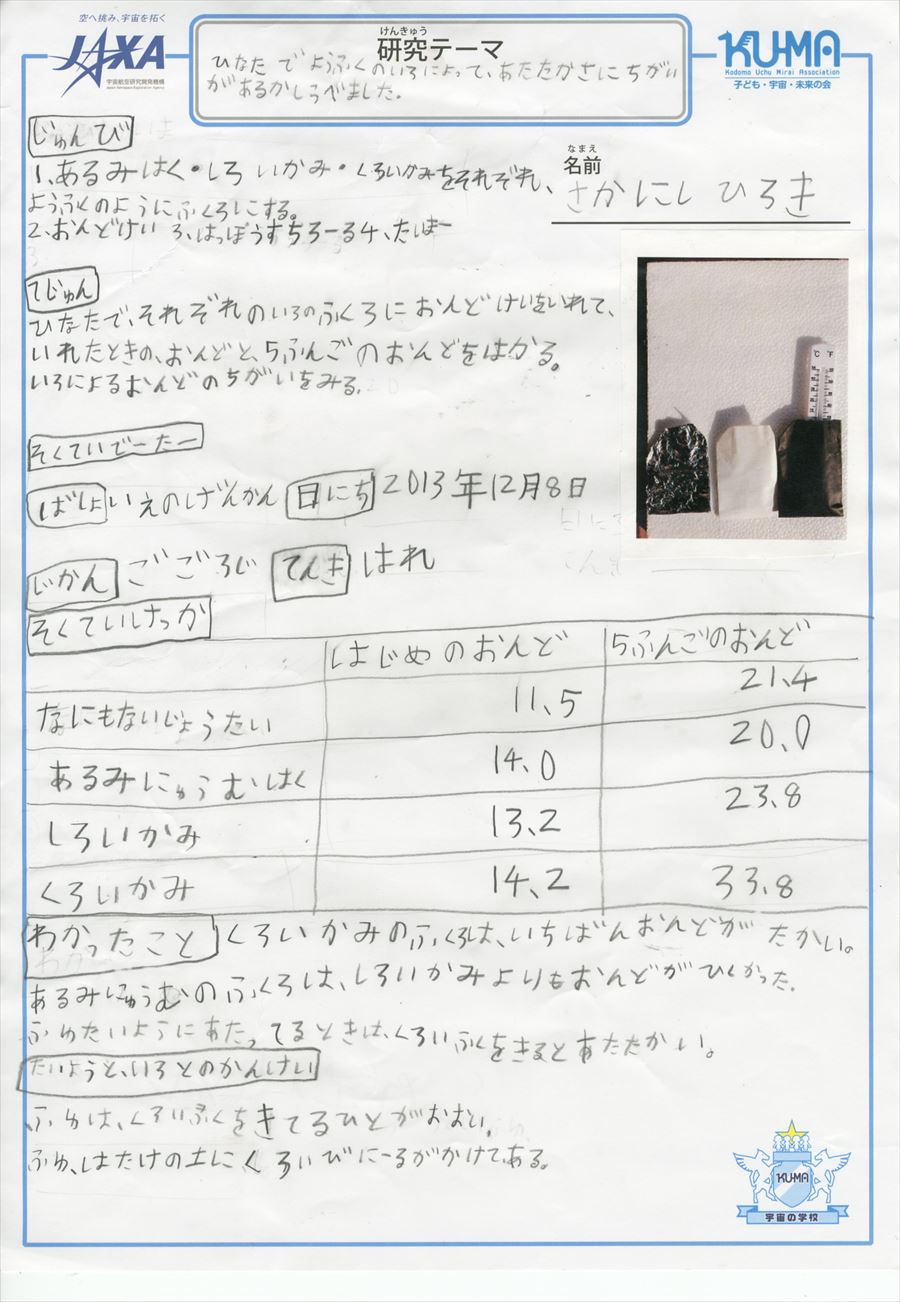 空へ挑み、宇宙を拓く
JAXA
宇宙航空研究開発機構
Japan Aerospace Exploration Agency
けんきゅう
研究テーマ
ひなた で ようふくのいろによって、あたたかさに ちがい
があるかしらべました.
KU-MA
Kodomo Uchu Mirai Association
子ども・宇宙・未来の会
じゅんび
1、あるみはく・しろいかみ・くろいかみをそれぞれ、
ようふくのようにふくろにする。
2、おんどけい 3、はっぽうすちろーる4、たいまー
なまえ
名前
さかにし ひろき
てじゅん
ひなたで、それぞれのいろのふくろに おんどけいをいれて、
いれたときの、おんどと、5ふんごのおんどをはかる。
いろによるおんどのちがいをみる.
°C °F
そくていでーたー
ばしょ いえのげんかん 日にち 2013年12月8日
じかん ごご3じ てんき はれ
そくていけっか
はじめのおんど 5ふんごのおんど
なにもないじょうたい 11、5 21、4
あるみにゅうむはく 14、0 20、0
しろいかみ 13、2 23、8
くろいかみ 14、2 33、8
わかったこと くろいかみのふくろは、いちばんおんどが たかい。
あるみにゅうむのふくろは、しろいかみよりもおんどがひくかった.
ふゆたいようにあたってるときは、くろいふくをきるとあたたかい。
たいようと、いろとのかんけい
ふゆは、くろいふくをきてるひとがおおい.
ふゆ、はたけの土にくろいびにーるがかけてある。
KU-MA
宇宙の学校